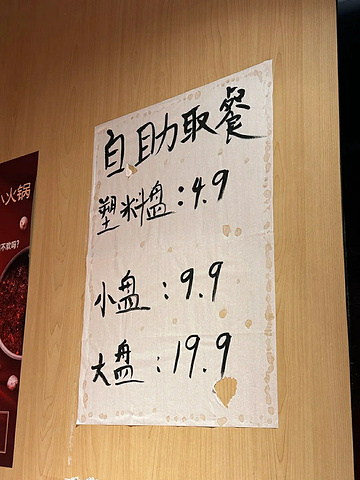 自助取餐
塑料盘:4.9
小盘:9.9
大盘:19.9
小火锅